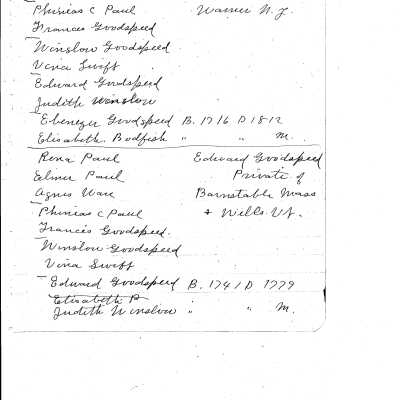 Phineas C Paul Warner N. J.
Frances Goodspeed
Winslow Goodspeed
Vina Swift
Edward Goodspeed
Judith Winslow
Ebenezer Goodspeed B. 1716 D 1812
Elisabeth Bodfish " " M.
Rena Paul Edward Goodspeed
Elmer Paul Private of
Agnes Ware Barnstable Mass
Phineas C Paul + Wells Vt.
Frances Goodspeed.
Winslow Goodspeed
Vina Swift
Edward Goodspeed B. 1741 D 1779
Elisabeth B
Judith Winslow " " M.